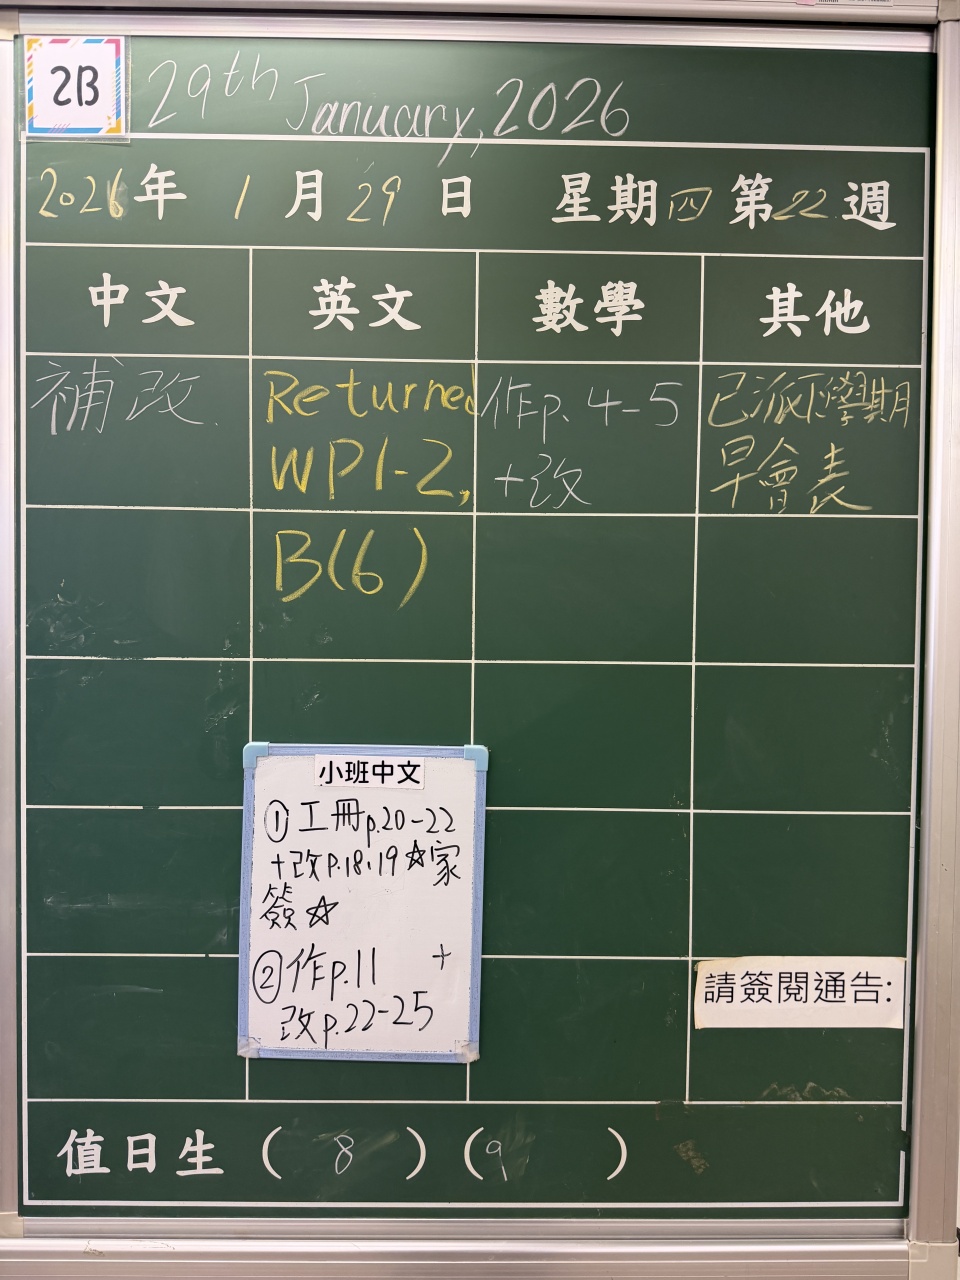 2B
29th January, 2026
2026年 1月 29日 星期四 第22週
中文 英文 數學 其他
補改.
Returned
WP1-2,
B(6)
作p. 4-5
+改
已派下學期
早會表
小班中文
① 工冊p.20-22
+改p.18,19 ☆家
簽☆
② 作p.11 +
改p.22-25
請簽閱通告:
值日生 ( 8 ) ( 9 )